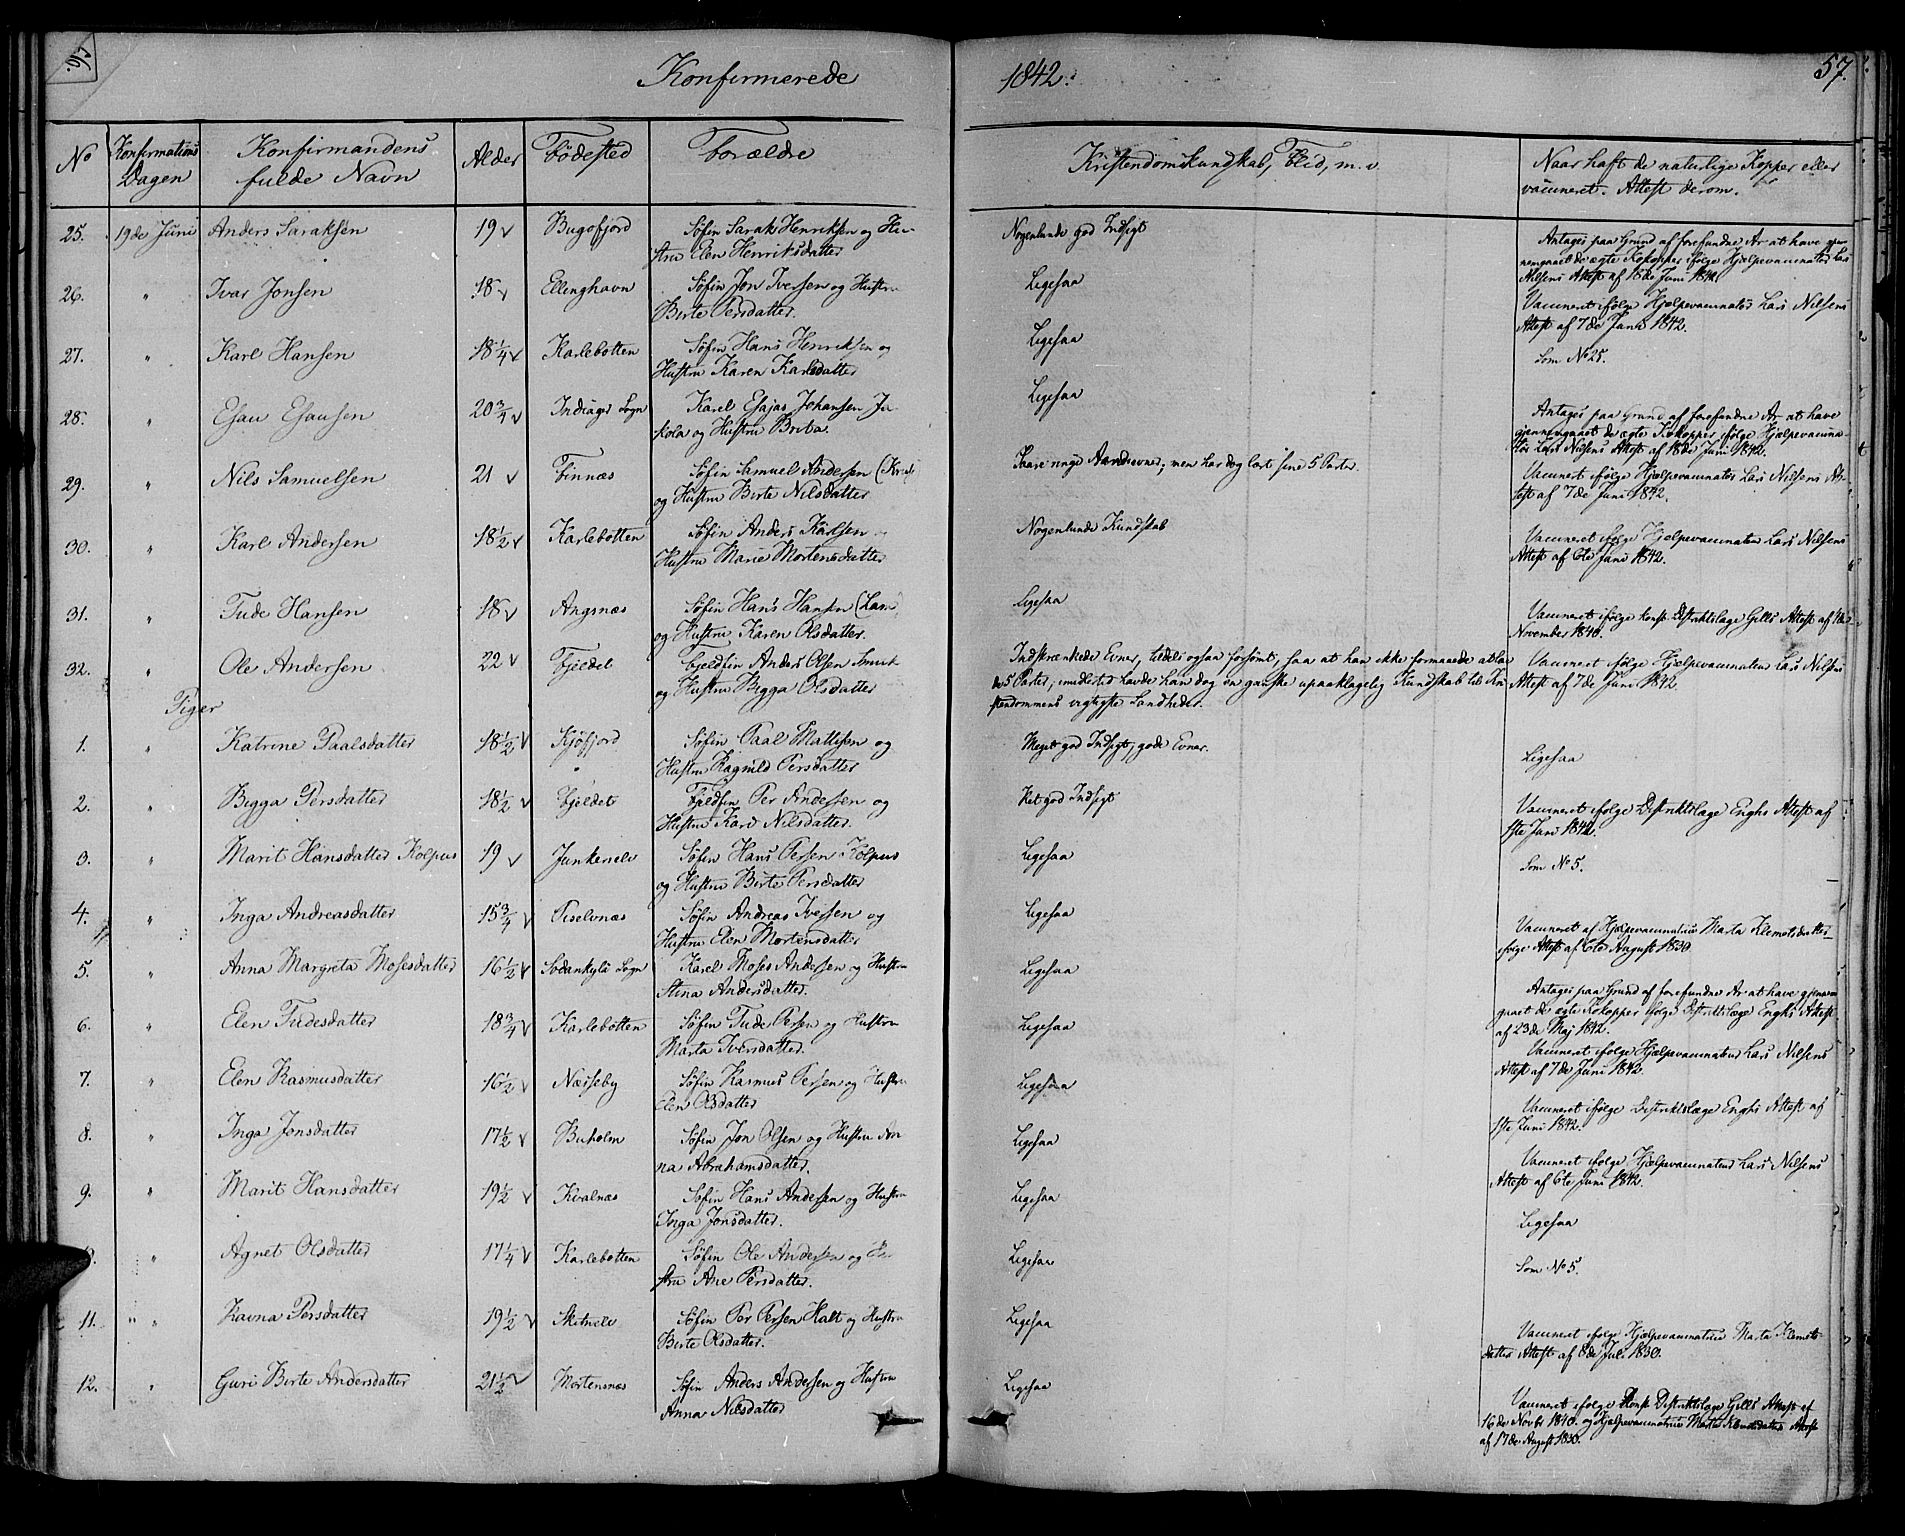 Konfirmerede 1842. 57.
No Konfirmations Dagen Konfirmandens fulde Navn Alder Födested Forældre Kristendomskundskab, Flid, m. v. Naar haft de naturlige Kopper eller vaccineret. Attest derom.
25. 19de Juni Anders Saraksen 19 Bugofjord Søfin Sarak Henriksen og Hustru Elen Henriksdatter Nogenlunde god Indsigt Antages paa Grund af forefundne Ar at have gjennemgaaet de ægte Kokopper ifølge Hjælpevaccinatør Lars Nilsens Attest af 18de Juni 1842.
26. " Ivar Jonsen 18 Ellinghavn Søfin Jon Iversen og Hustru Birte Persdatter. Ligesaa Vaccineret ifølge Hjælpevaccinatør Lars Nilsens Attest af 7de Juni 1842.
27. " Karl Hansen 18¼ Karlebotten Søfin Hans Henriksen og Hustru Karen Karlsdatter Ligesaa Som No 25.
28. " Esau Esausen 20¾ Indiager Sogn Karel Esajas Johansen og Hustru Brita. Ligesaa Antages paa Grund af forefundne Ar at have gjennemgaaet de ægte Kokopper ifølge Hjælpevaccinatør Lars Nilsens Attest af 18de Juni 1842.
29. " Nils Samuelsen 21 Finnæs Søfin Samuel Andersen og Hustru Birte Nilsdatter Saare ringe Aandsevner, men har dog lært sine 5 Parter. Vaccineret ifølge Hjælpevaccinatør Lars Nilsens Attest af 7de Juni 1842.
30. " Karl Andersen 18½ Karlebotten Søfin Anders Karlsen og Hustru Marie Mortensdatter Nogenlunde Kundskab Vaccineret ifølge Hjælpevaccinatør Lars Nilsens Attest af 6te Juni 1842.
31. " Tude Hansen 18 Angsnæs Søfin Hans Hansen og Hustru Karen Olsdatter. Ligesaa Vaccineret ifølge konst. Distriktslæge Gills Attest af November 1840.
32. " Ole Andersen 22 Fjeldet Fjeldfin Anders Olsen Smuk og Hustru Bigga Olsdatter Indskrænkede Evner, tildels ogsaa forsömt, saa at han ikke formaaede at lære 5 Parter, imidlertid havde han dog en ganske upaaklagelig Kundskab til Kristendommens vigtigste Sandheder. Vaccineret ifølge Hjælpevaccinatør Lars Nilsens Attest af 7de Juni 1842.
Piger
1. " Katrine Paalsdatter 18½ Kjöfjord Søfin Paal Mattisen og Hustru Ragnild Persdatter Meget god Indsigt, gode Evner. Ligesaa
2. " Bigga Persdatter 18½ Fjeldet Fjeldfin Per Andersen og Hustru Kari Nilsdatter. Ret god Indsigt Vaccineret ifølge Distriktslæge Enghs Attest af 1ste Juni 1842.
3. " Marit Hansdatter Kolpus 19 Junkerelv Søfin Hans Persen Kolpus og Hustru Birte Persdatter Ligesaa Som No 5.
4. " Inga Andreasdatter 15¾ Piselvnæs Søfin Andreas Iversen og Hustru Elen Mortensdatter Ligesaa Vaccineret af Hjælpevaccinatrice Marta Klemetsdatter ifølge Attest af 6te August 1830
5. " Anna Margreta Mosesdatter 16½ Sodankylä Sogn Karel Moses Andersen og Hustru Stina Andersdatter. Ligesaa Antages paa Grund af forefundne Ar at have gjennemgaaet de ægte Kokopper ifølge Distriktslæge Enghs Attest af 23de Maj 1842.
6. " Elen Tudesdatter 18¾ Karlebotten Søfin Tude Persen og Hustru Marta Iversdatter. Ligesaa Vaccineret ifølge Hjælpevaccinatør Lars Nilsens Attest af 7de Juni 1842.
7. " Elen Rasmusdatter 16½ Næsseby Søfin Rasmus Persen og Hustru Elen Olsdatter Ligesaa Vaccineret ifølge Distriktslæge Enghs Attest af 1ste Juni 1842.
8. " Inga Jonsdatter 17½ Buholm Søfin Jon Olsen og Hustru Anna Abrahamsdatter. Ligesaa Vaccineret ifølge Hjælpevaccinatør Lars Nilsens Attest af 6te Juni 1842.
9. " Marit Hansdatter 19½ Kvalnæs Søfin Hans Andersen og Hustru Inga Jonsdatter. Ligesaa Ligesaa
" Agnet Olsdatter 17¼ Karlebotten Søfin Ole Andersen og Hustru Ane Persdatter. Ligesaa Som No 5.
11. " Ravna Persdatter 19½ Søfin Per Persen Halt og Hustru Birte Olsdatter. Ligesaa Vaccineret ifølge Hjælpevaccinatrice Marta Klemetsdatters Attest af 8de Juli 1830.
12. " Guri Birte Andersdatter 21½ Mortensnæs Søfin Anders Andersen og Hustru Anna Nilsdatter Ligesaa Vaccineret ifølge Konst. Distriktslæge Gills Attest af 16de Novbr 1840. og Hjælpevaccinatrice Marta Klemetsdatters Attest af 17de August 1830.